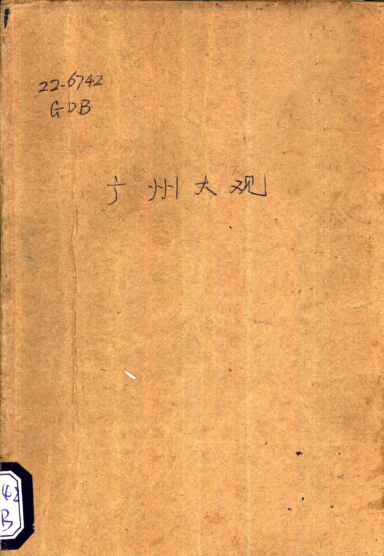 22-6742
GDB
广州大观
42
B